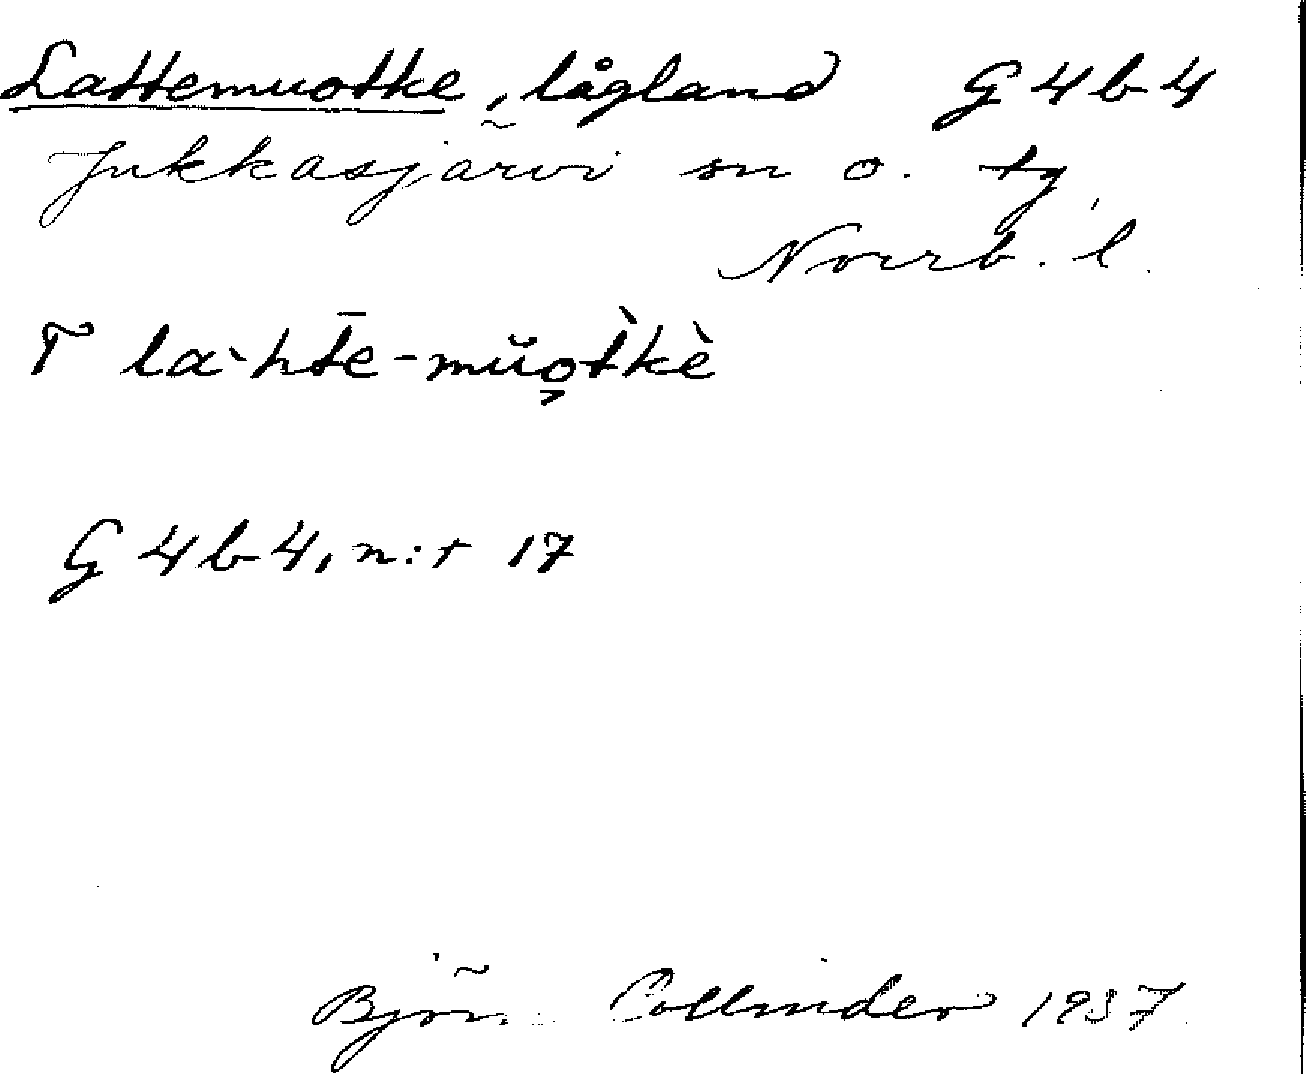 Lattemuotke, lågland G4b4
Jukkasjärvi sn o. tg,
Norrb. l.
T la`htē-mŭo̭t̀kè
G4b4, n:r 17
Björn Collinder 1937